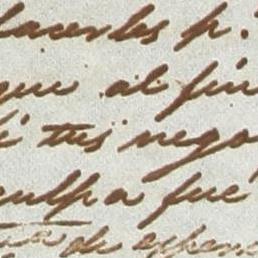 hacerles p.
que al fin
tus nego
culpa fue
de espera